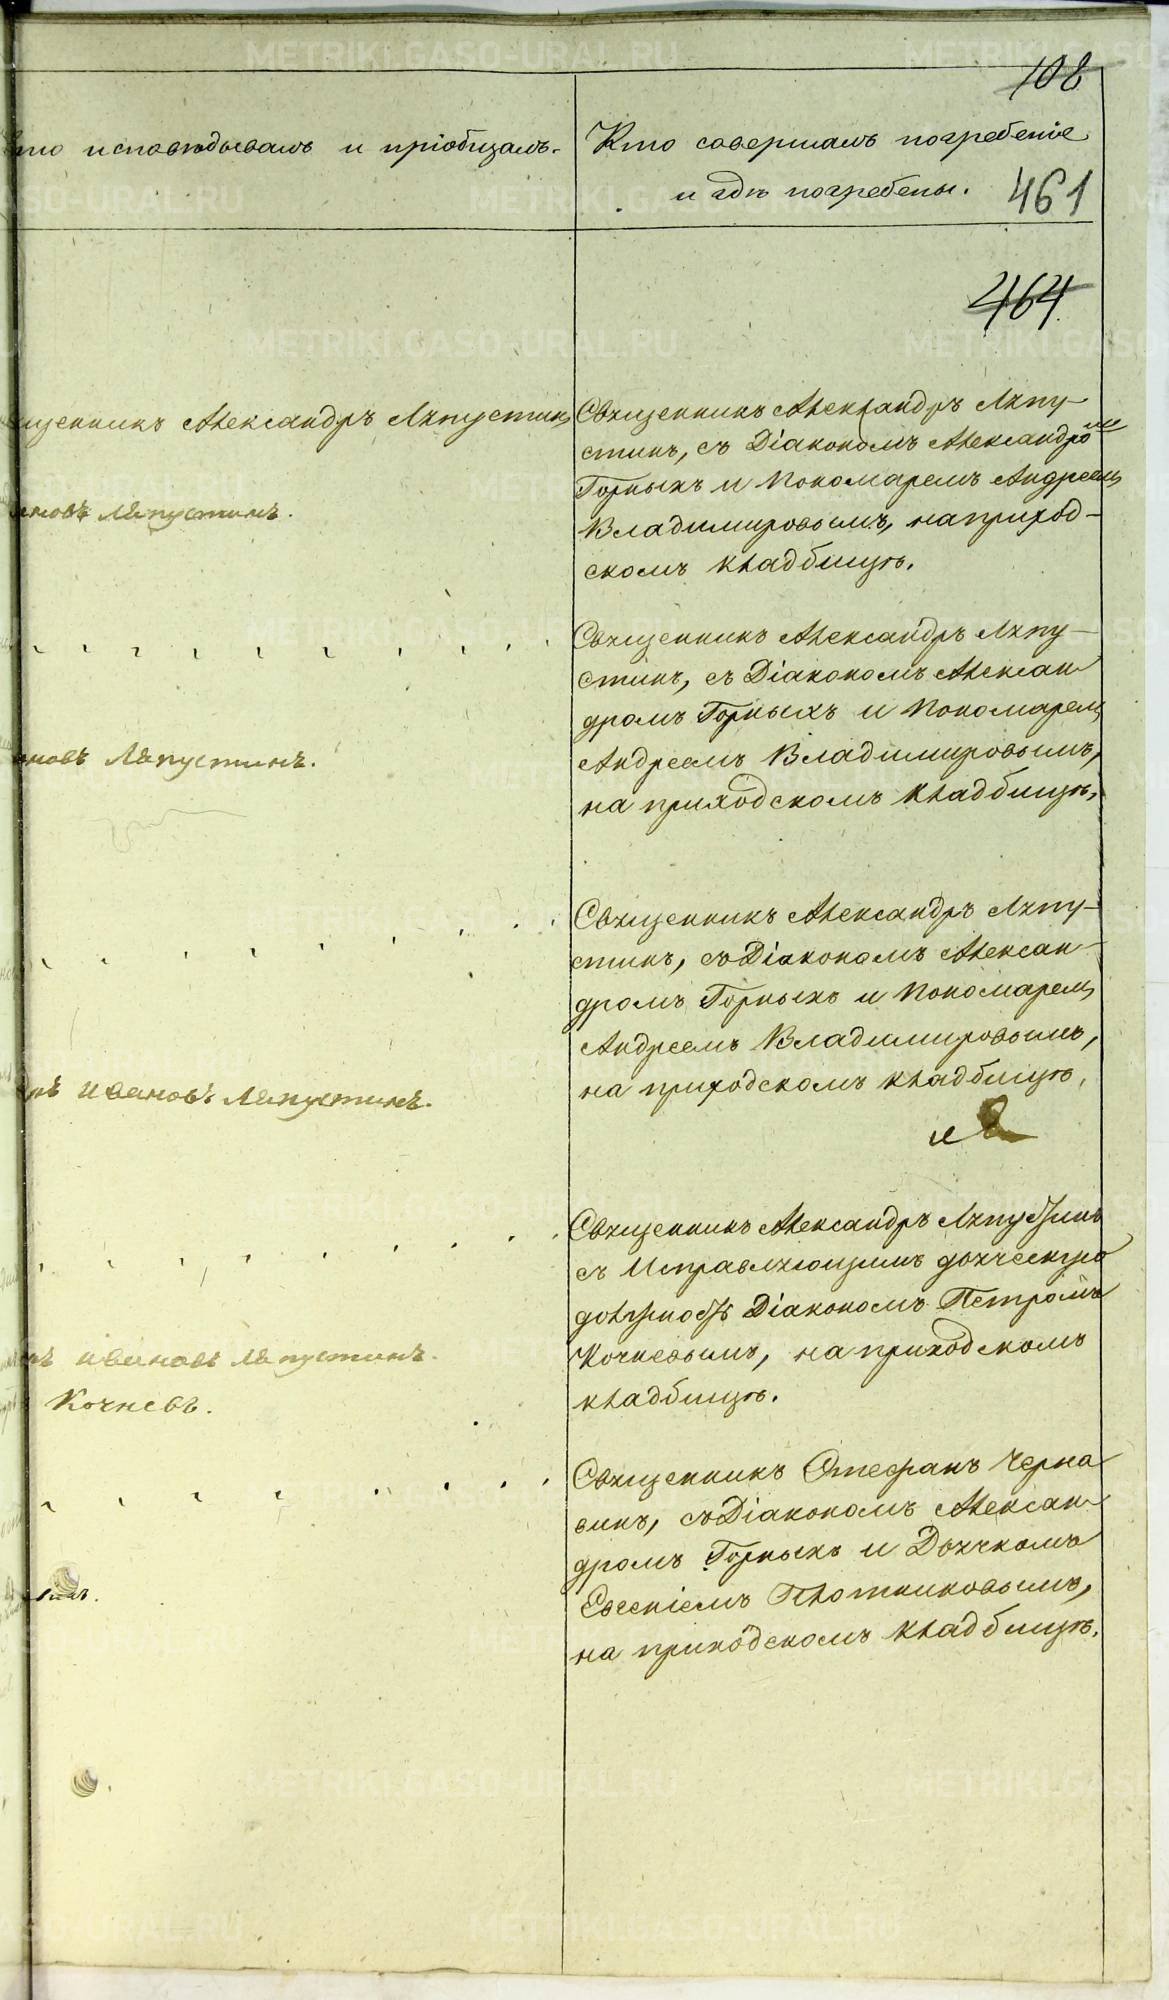 108
то исповѣдывалъ и пріобщалъ.
Кто совершалъ погребеніе
и гдѣ погребены.
461
464
щенникъ Александръ Ляпустинъ
Священникъ Александръ Ляпу-
стинъ, съ Діакономъ Александромъ
Горныхъ и Пономаремъ Андреемъ
Владимировымъ, на приход-
скомъ кладбищѣ.
ановъ Ляпустинъ.
Священникъ Александръ Ляпу-
стинъ, съ Діакономъ Алексан
дромъ Горныхъ и Пономаремъ
Андреемъ Владимировымъ,
на приходскомъ кладбищѣ,
ановъ Ляпустинъ.
Священникъ Александръ Ляпу-
стинъ, съ Діакономъ Алексан-
дромъ Горныхъ и Пономаремъ
Андреемъ Владимировымъ,
на приходскомъ кладбищѣ,
ръ Ивановъ Ляпустинъ.
Священникъ Александръ Ляпустинъ
съ Исправляющимъ дьяческую
должность Діакономъ Петромъ
Кочневымъ, на приходскомъ
кладбищѣ.
ръ Ивановъ Ляпустинъ.
Кочневъ.
Священникъ Стефанъ Черна
винъ, съ Діакономъ Алексан
дромъ Горныхъ и Дьячкомъ
Евгеніемъ Плотниковымъ,
на приходскомъ кладбищѣ.
METRIKI.GASO-URAL.RU